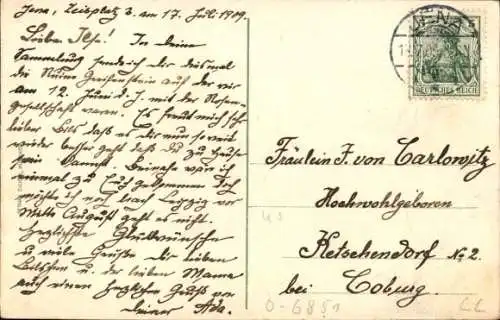 Jena, Zeisplatz 3. am 17. Juli 1909.
Liebe Ilse! In deine
Sammlung sende ich dir diesmal
die Ruine Greifenstein auf der wir
am 12. Juni d. J. mit der Rosen-
gesellschaft waren. Es freut mich sehr
lieber Bels daß es dir nun soweit
wieder besser geht daß du zu Hause
sein kannst. Beinahe wär ich
einmal zu Euch gekommen doch
möchte ich noch nach Leipzig vor
Mitte August geht es nicht.
Herzlichste Glückwünsche
u. viele Grüße dir lieben
Belschen u. der lieben Mama
auch einen herzlichen Gruß von
deiner Ada.
JENA
DEUTSCHES REICH
5
Fräulein J. von Carlowitz
Hochwohlgeboren
Ketschendorf No 2.
bei Coburg
0-6851